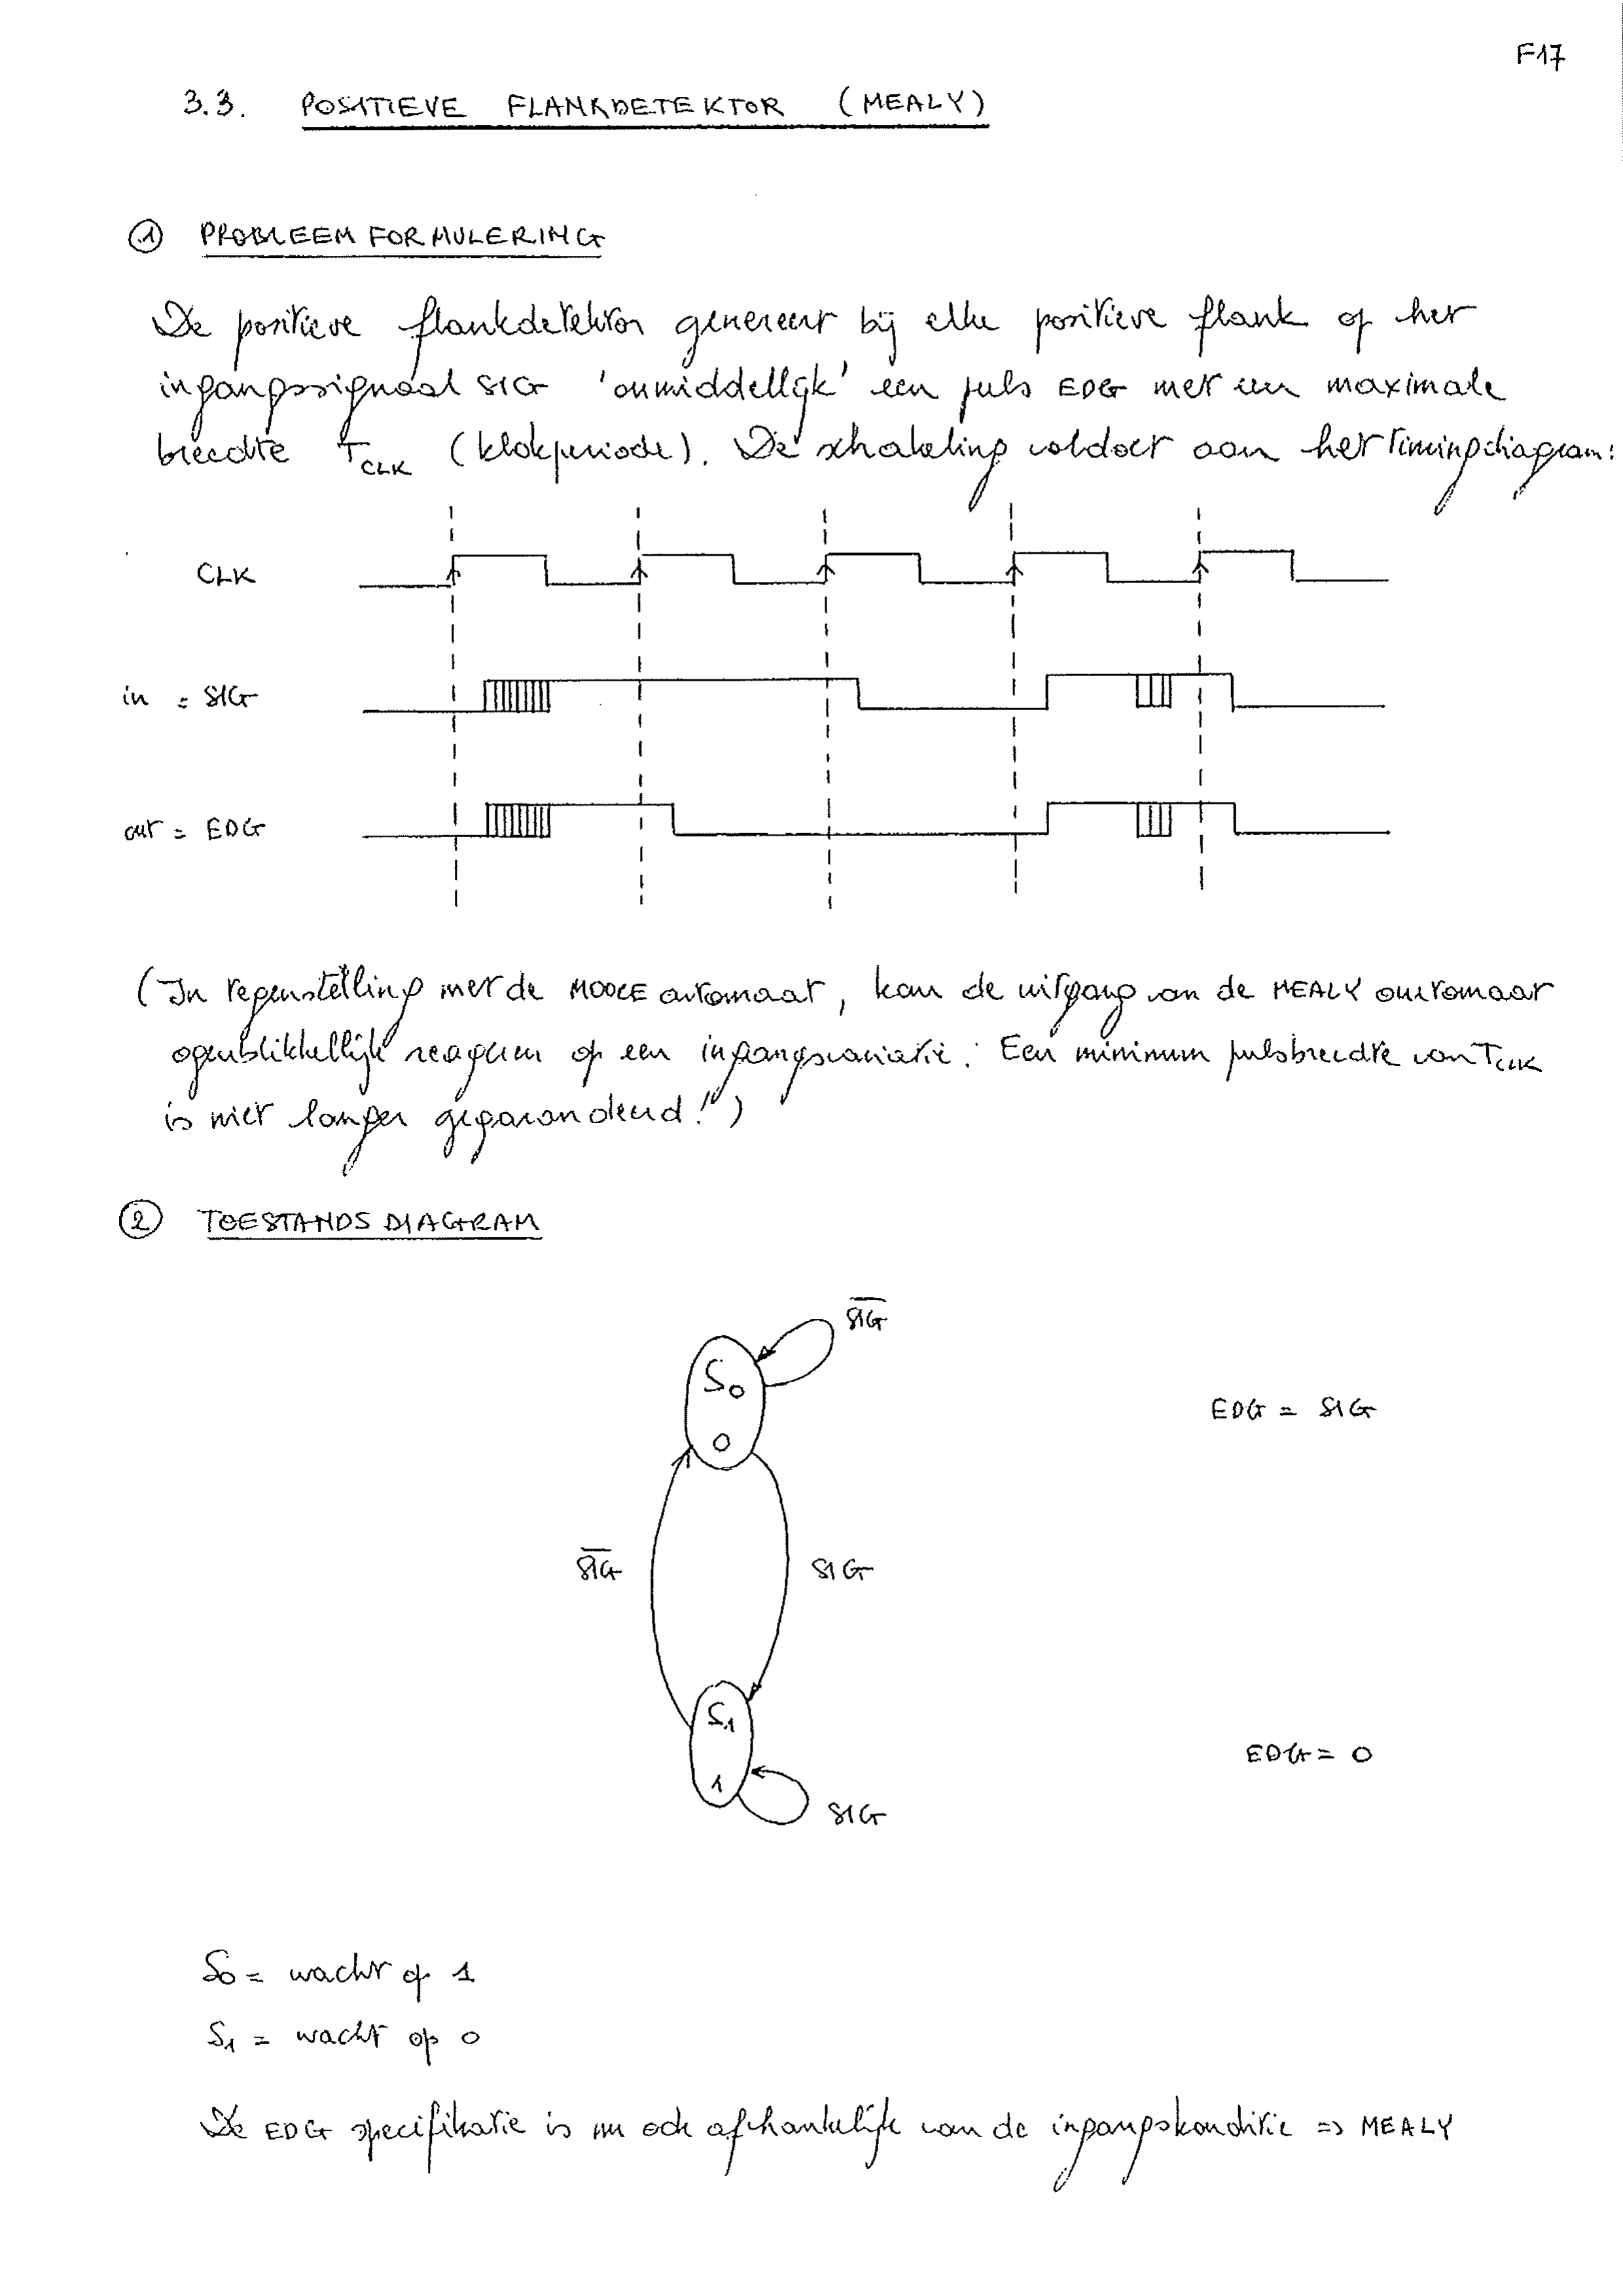 F17
3.3. POSITIEVE FLANKDETEKTOR (MEALY)
① PROBLEEMFORMULERING
De positieve flankdetektor genereert bij elke positieve flank op het
ingangssignaal SIG 'onmiddellijk' een puls EDG met een maximale
breedte T_CLK (klokperiode). De schakeling voldoet aan het timingdiagram:
CLK
in = SIG
out = EDG
(In tegenstelling met de MOORE automaat, kan de uitgang van de MEALY automaat
ogenblikkellijk reageren op een ingangsvariatie. Een minimum pulsbreedte van T_CLK
is niet langer gegarandeerd!!)
② TOESTANDSDIAGRAM
S̅I̅G̅
S₀
0
EDG = SIG
S̅I̅G̅
SIG
S₁
1
EDG = 0
SIG
S₀ = wacht op 1
S₁ = wacht op 0
De EDG specifikatie is nu ook afhankelijk van de ingangskonditie => MEALY